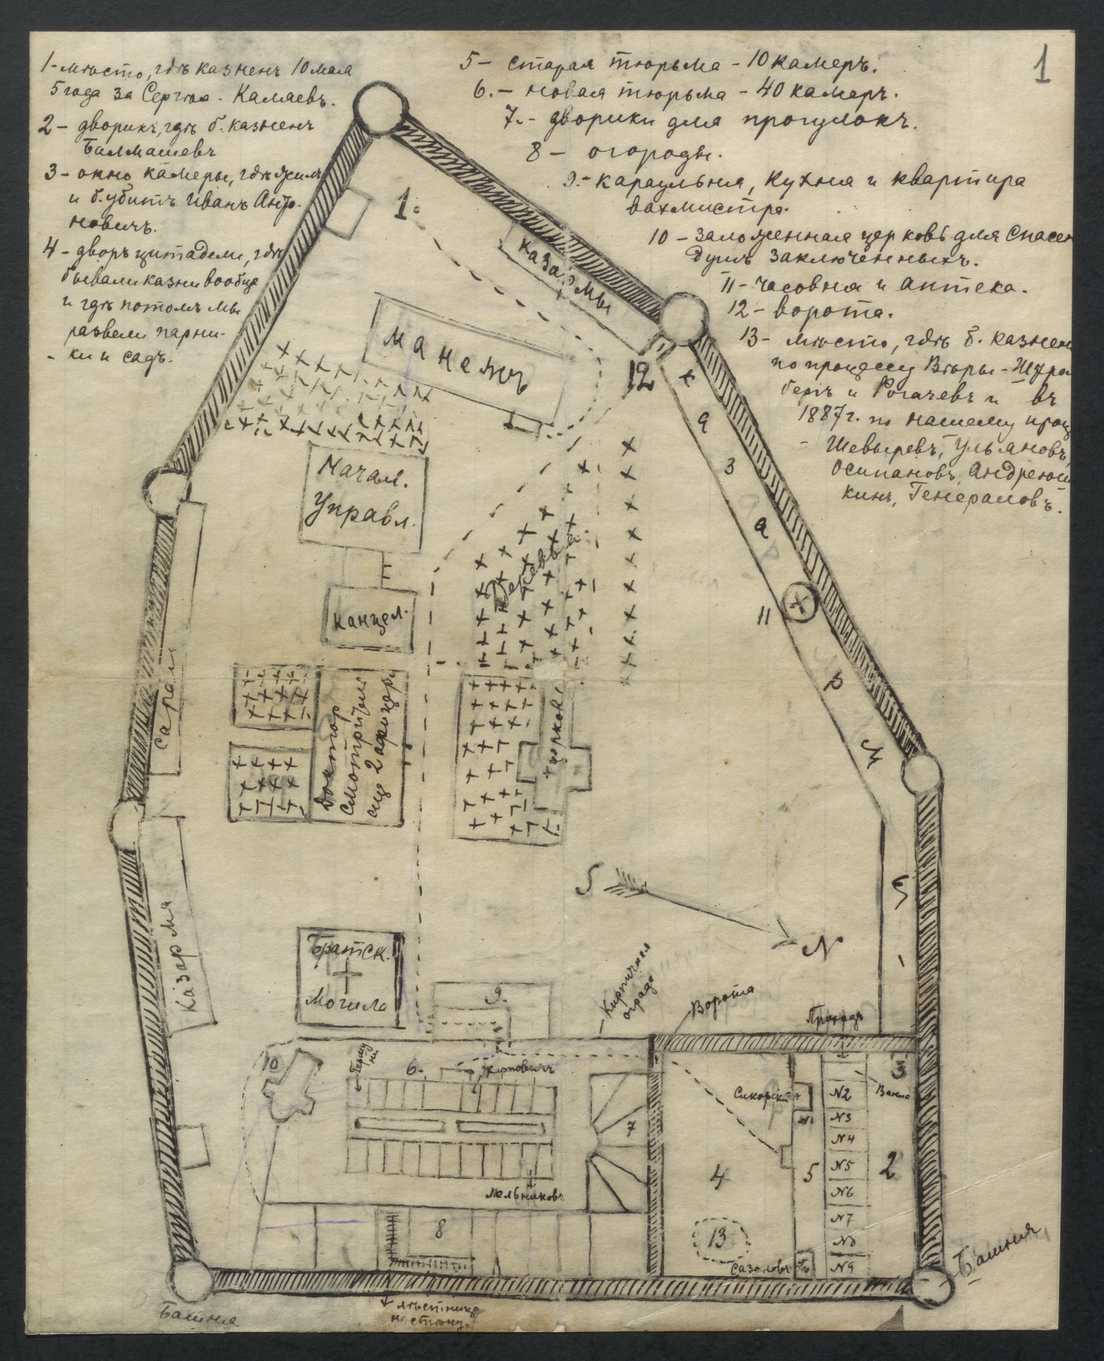 1 - мѣсто, гдѣ казненъ 10 мая
5 года за Сергѣя - Каляевъ.
2 - дворикъ, гдѣ б. казненъ
Балмашевъ
3 - окно камеры, гдѣ жилъ
и б. убитъ Иванъ Анто-
новичъ.
4 - дворъ цитадели, гдѣ
бывали казни вообще
и гдѣ потомъ мы
развели парни-
- ки и садъ.
5 - старая тюрьма - 10 камеръ.
6. - новая тюрьма - 40 камеръ.
7. - дворики для прогулокъ.
8 - огороды.
9. - караульня, кухня и квартира
вахмистра.
10 - заложенная церковь для спасен
душъ заключенныхъ.
11 - часовня и аптека.
12 - ворота.
13 - мѣсто, гдѣ б. казнен
по процессу Вѣры - Штром
бергъ и Рогачевъ и въ
1887 г. по нашему проц
- Шевыревъ, Ульяновъ,
Осипановъ, Андреюш
кинъ, Генераловъ.
1
1.
казармы
Манежъ
12
к а з а р м ы
Начал.
Управл.
канцел.
Деревья
11
сараи
Докторъ
смотритель
еще 2 офицера
церковь
S
N
Казарма
Братск.
Могила
9.
Кирпичная
ограда
Ворота
Проходъ
10
6.
Карповичъ
7
Мельниковъ
8
4
13
5
Сазоновъ
№1
№2
№3
№4
№5
№6
№7
№8
№9
Ванна
3
2
Башня
Башня
лѣстница
на стѣну.